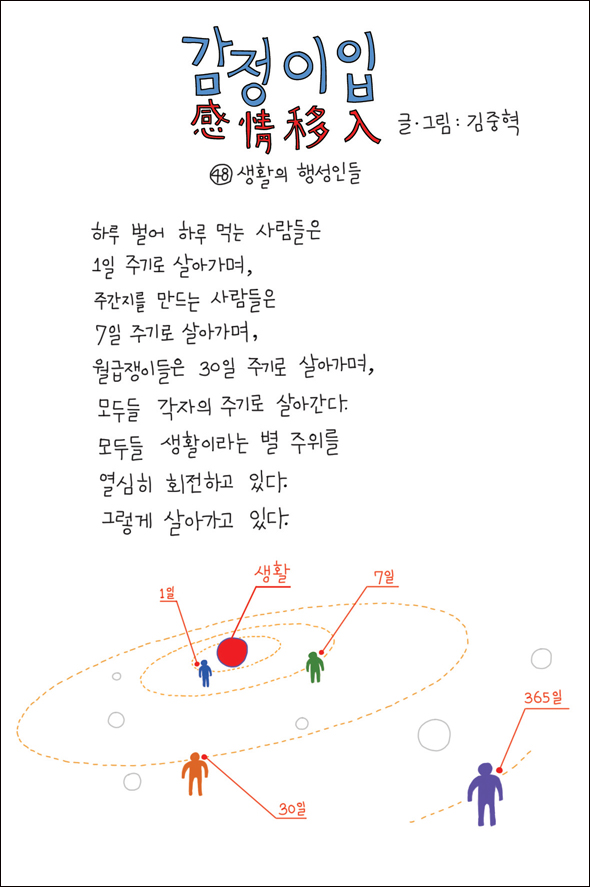 감정이입
感情移入
글·그림: 김중혁
48 생활의 행성인들
하루 벌어 하루 먹는 사람들은
1일 주기로 살아가며,
주간지를 만드는 사람들은
7일 주기로 살아가며,
월급쟁이들은 30일 주기로 살아가며,
모두들 각자의 주기로 살아간다.
모두들 생활이라는 별 주위를
열심히 회전하고 있다.
그렇게 살아가고 있다.
생활
7일
1일
365일
30일